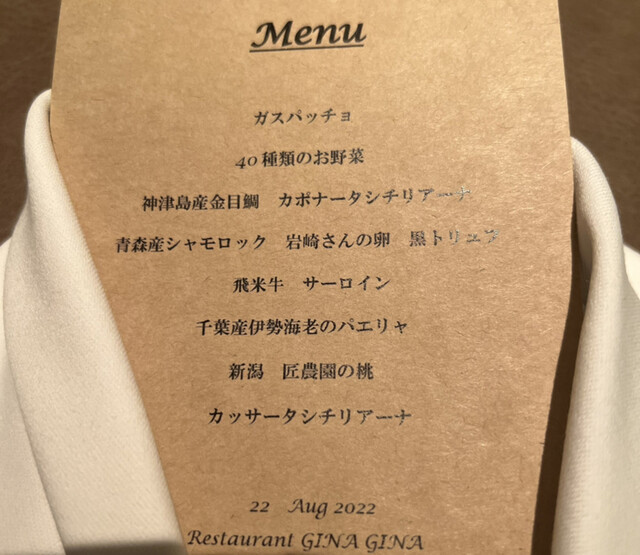 Menu
ガスパッチョ
40種類のお野菜
神津島産金目鯛　カポナータシチリアーナ
青森産シャモロック　岩崎さんの卵　黒トリュフ
飛米牛　サーロイン
千葉産伊勢海老のパエリャ
新潟　匠農園の桃
カッサータシチリアーナ
22 Aug 2022
Restaurant GINA GINA